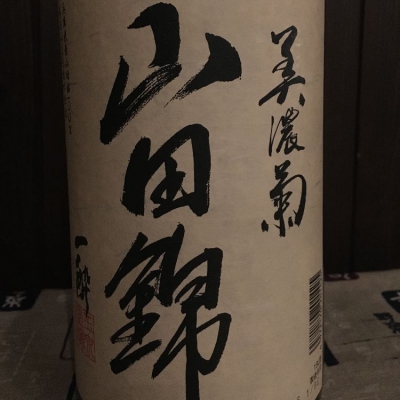 美濃菊
山田錦
一酔